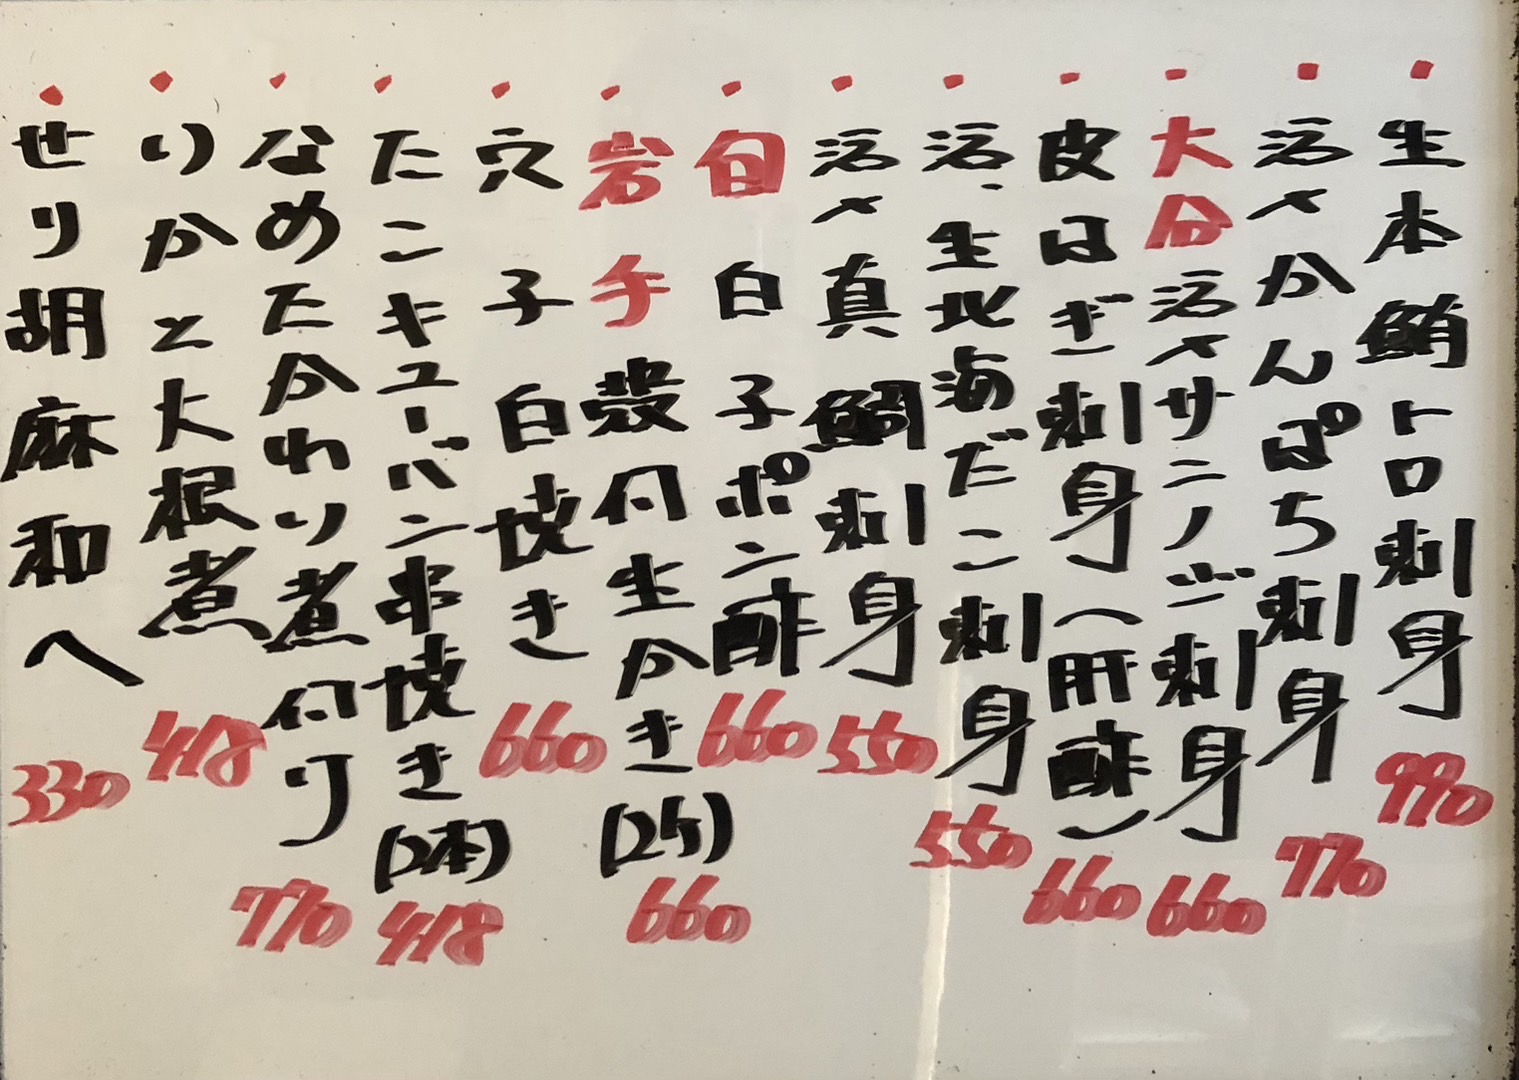 生本鮪トロ刺身 990
活〆かんぱち刺身 770
大分活〆サニノジ刺身 660
皮はぎ刺身(肝酢) 660
活、生北海だこ刺身 550
活〆真鯛刺身 550
旬白子ポン酢 660
岩手殻付生かき(2ケ) 660
穴子白焼き 660
たこキューバン串焼き(2本) 418
なめたかわり煮付け 770
いかと大根煮 418
せり胡麻和へ 330